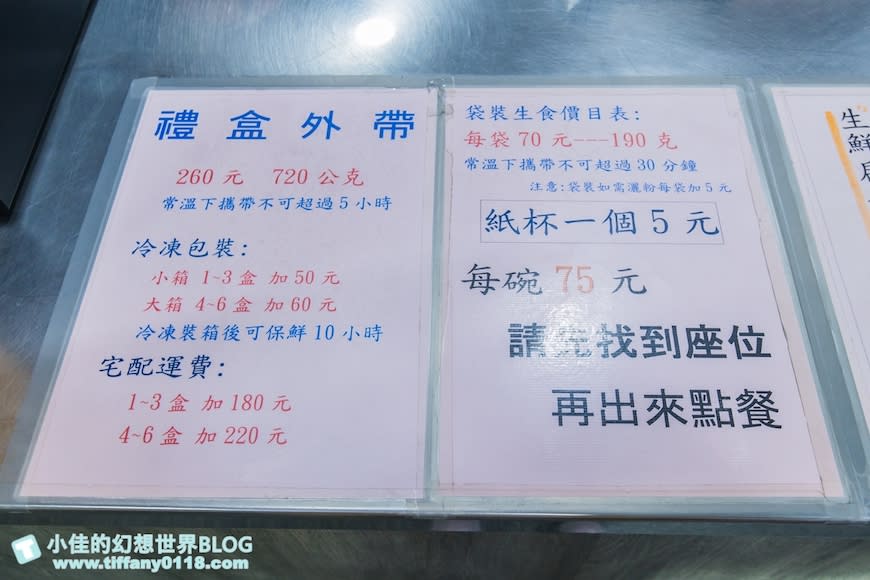 禮盒外帶
260元 720公克
常溫下攜帶不可超過5小時
冷凍包裝:
小箱 1~3盒 加50元
大箱 4~6盒 加60元
冷凍裝箱後可保鮮10小時
宅配運費:
1~3盒 加180元
4~6盒 加220元
袋裝生食價目表:
每袋70元---190克
常溫下攜帶不可超過30分鐘
注意:袋裝如需灑粉每袋加5元
紙杯一個5元
每碗75元
請先找到座位
再出來點餐
生
鮮
小佳的幻想世界BLOG
www.tiffany0118.com